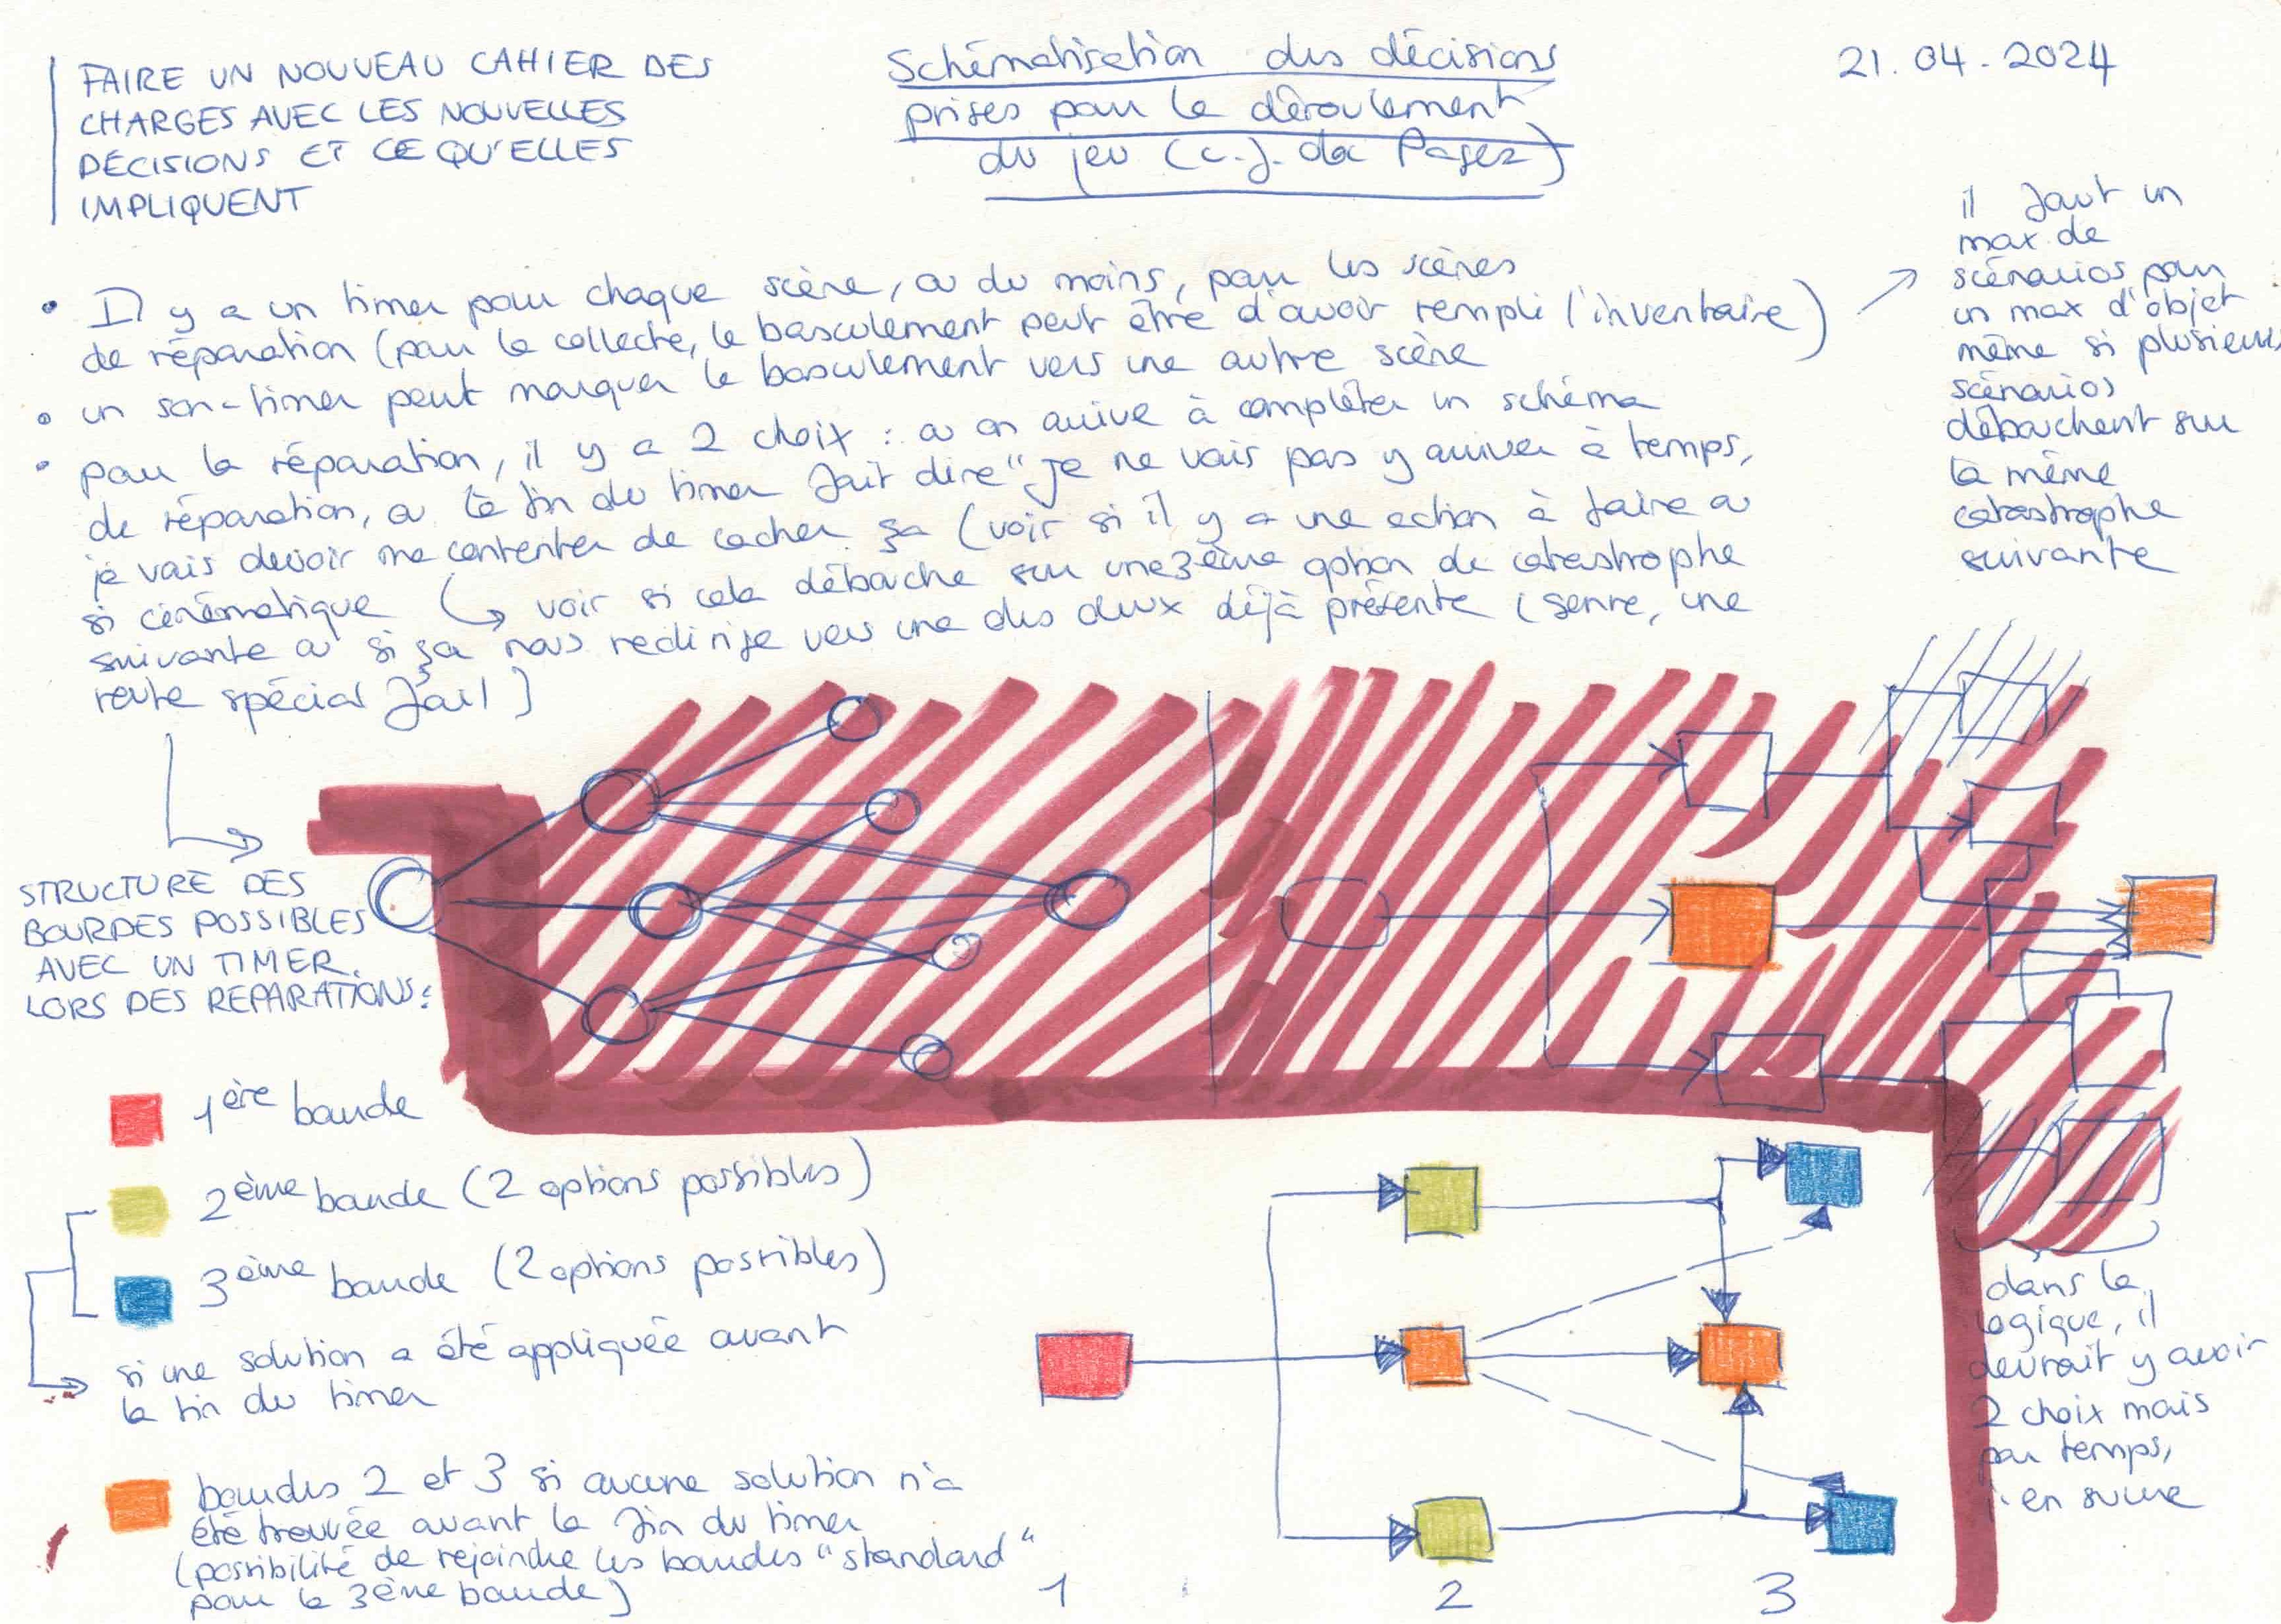 FAIRE UN NOUVEAU CAHIER DES
CHARGES AVEC LES NOUVELLES
DÉCISIONS ET CE QU'ELLES
IMPLIQUENT
Schématisation des décisions
prises pour le déroulement
du jeu (c.j. doc Pages)
21.04.2024
il faut un
max de
scénarios pour
un max d'objet
même si plusieurs
scénarios
débouchent sur
la même
catastrophe
suivante
• Il y a un timer pour chaque scène, ou du moins, pour les scènes
de réparation (pour la collecte, le basculement peut être d'avoir rempli l'inventaire)
• un son-timer peut marquer le basculement vers une autre scène
• pour la réparation, il y a 2 choix : ou on arrive à compléter un schéma
de réparation, ou la fin du timer fait dire "je ne vais pas y arriver à temps,
je vais devoir me contenter de cacher ça (voir si il y a une action à faire ou
si cinématique ↳ voir si cela débouche sur une 3ème option de catastrophe
suivante ou si ça nous redirige vers une des deux déjà présente (genre, une
route spécial fail)
STRUCTURE DES
BOURDES POSSIBLES
AVEC UN TIMER
LORS DES REPARATIONS :
1ère bourde
2ème bourde (2 options possibles)
3ème bourde (2 options possibles)
si une solution a été appliquée avant
la fin du timer
bourdes 2 et 3 si aucune solution n'a
été trouvée avant la fin du timer
(possibilité de rejoindre les bourdes "standard"
pour la 3ème bourde)
1 2 3
dans la
logique, il
devrait y avoir
2 choix mais
par temps,
en